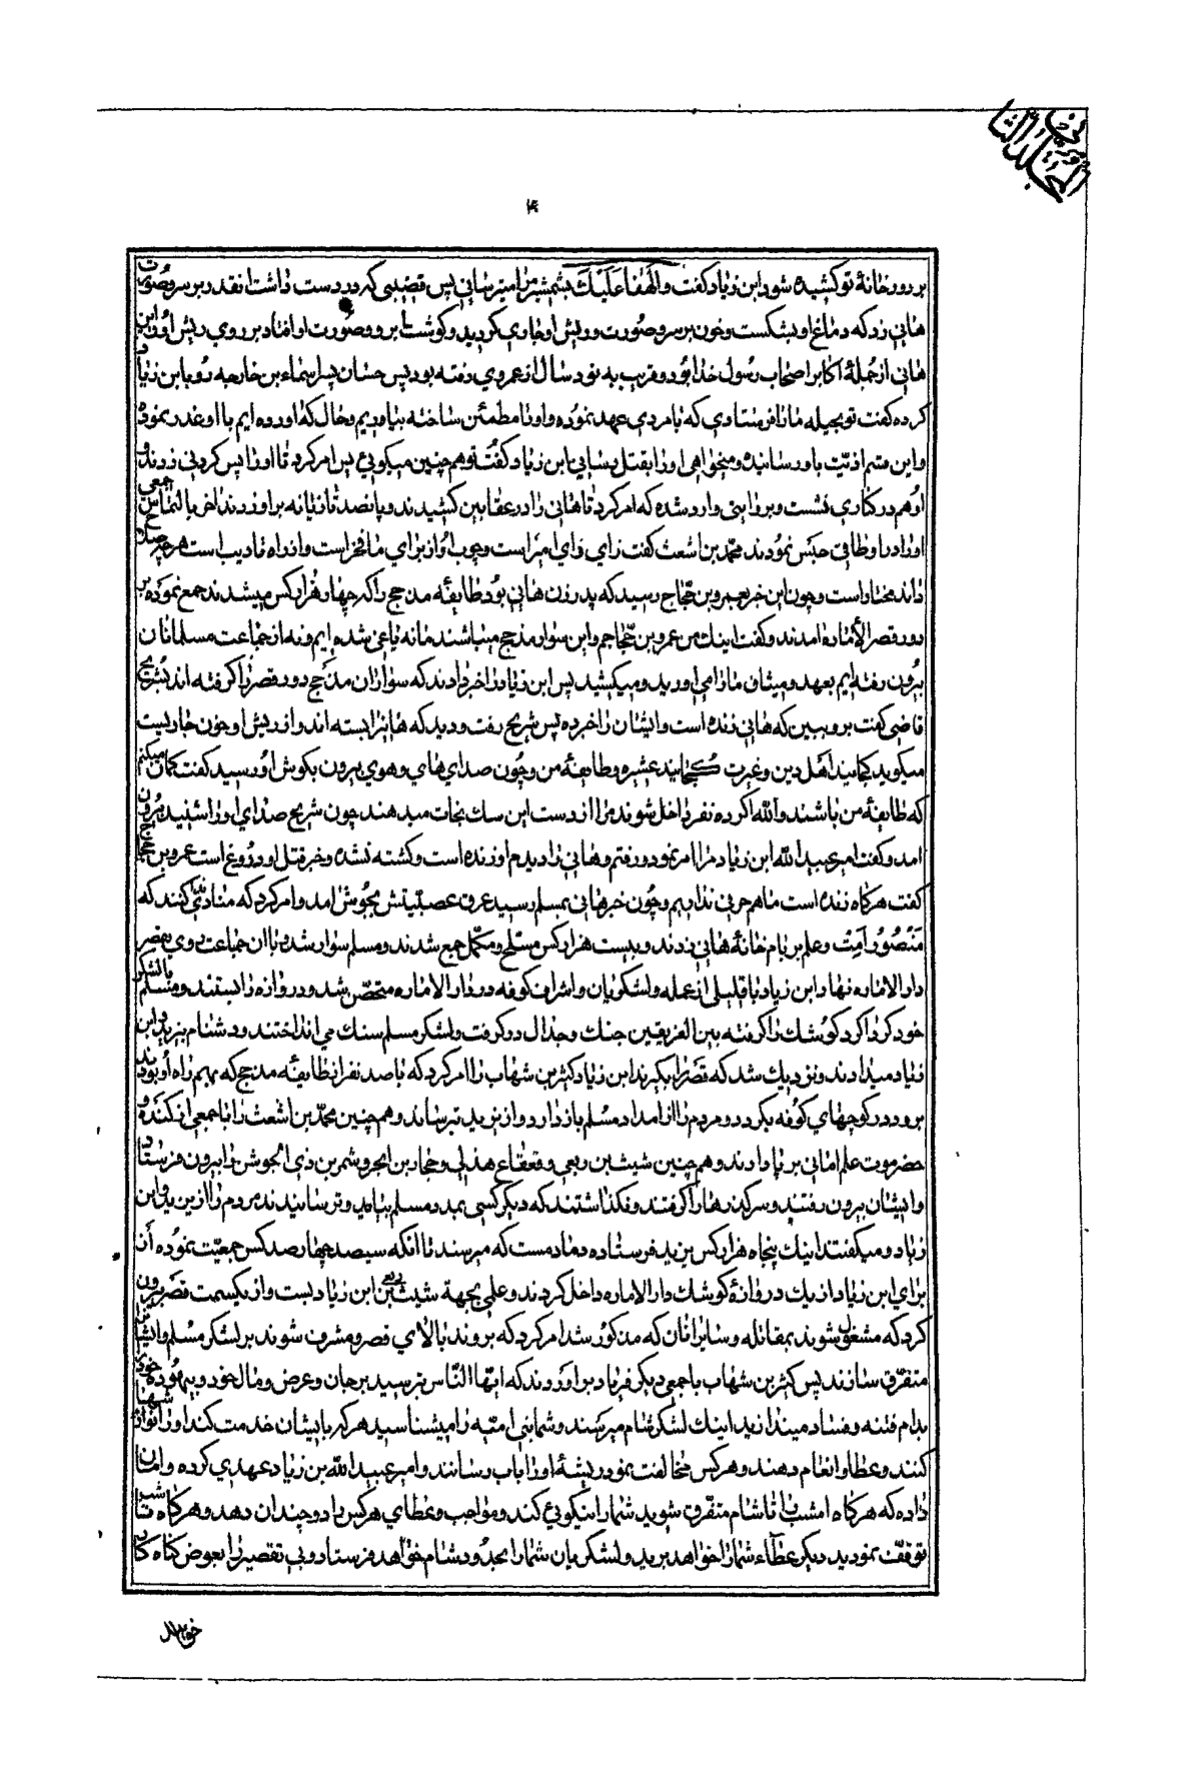 المجلد الثاني
۴
بر دور خانهٔ تو کشیده شود ابن زیاد کفت والَهْفا عَلَیْکَ بشمشیر مرا میترسانی پس قضیبی که در دست داشت انقدر بر سر و صورت
هانی زد که دماغ او بشکست و خون بر سر و صورت و ریش او جاری کردید و کوشت ابرو و صورت او افتاد بر روی ریش او و این
هانی از جملهٔ اکابر اصحاب رسول خدا بود و قریب به نود سال از عمر وی رفته بود پس حسّان پسر اسماء بن خارجه رو بابن زیاد
کرده کفت تو بحیله ما را فرستادی که با مردی عهد نموده و او را مطمئن ساخته بیاوریم و حال که اورده ایم با او غدر نموده
و این ستم و اذیّت باو رسانیده و میخواهی او را بقتل رسانی ابن زیاد کفت تو هم چنین میکوئی پس امر کرد تا او را پس کردنی زدند و
او هم در کناری نشست و بروایتی وارد شده که امر کرد تا هانی را در عقابین کشیدند و پانصد تازیانه بر او زدند اخر بالتماس جمعی
او را در اوطاقی حبس نمودند محمّد بن اشعث کفت رای رای امیر است و چوب او از برای ما فخر است و از راه تادیب است هر چه صلاح
داند مختار است و چون این خبر بعمرو بن حجّاج رسید که پدر زن هانی بود طایفهٔ مذحج را که چهار هزار کس میشدند جمع نموده بر
دور قصر الأماره امدند و کفت اینک من عمرو بن حجّاجم و این سوار مذحج میباشند ما نه یاغی شده ایم و نه از جماعت مسلمانان
بیرون رفته ایم بعهد و میثان ما را می اورید و میکشید پس ابن زیاد را خبر دادند که سواران مذحج دور قصر را کرفته اند بشریح
قاضی کفت برو ببین که هانی زنده است و ایشان را خبر ده پس شریح رفت و دید که هانی را بسته اند و از ریش او خون جاریست
میکوید کجایند اهل دین و غیرت کجایند عشیره و طایفهٔ من و چون صدای های و هوی بیرون بکوش او رسید کفت کمان میکنم
که طایفهٔ من باشند و الله اکر ده نفر داخل شوند مرا از دست این سک نجات میدهند چون شریح صدای او را شنید بیرون
امد و کفت امیر عبید الله ابن زیاد مرا امر نمود و رفتم و هانی را دیدم او زنده است و کشته نشده و خبر قتل او دروغ است عمرو بن حجاج
کفت هرکاه زنده است ما هم حربی نداریم و چون خبر هانی بمسلم رسید عرق عصبیّتش بجوش امد و امر کرد که منادی کنند که
مَنْصُورُ اَمِتْ و علم بر بام خانهٔ هانی زدند و بیست هزار کس مسلح و مکمل جمع شدند و مسلم سوار شده با ان جماعت روی بقصر
دار الاماره نهاد ابن زیاد با قلیلی از عمله و لشکریان و اشراف کوفه در دار الاماره متحصّن شد و دروازه را بستند و مسلم بالشکر
خود کرداکرد کوشک را کرفته بین الفریقین جنک و جدال در کرفت و لشکر مسلم سنک می انداختند و دشنام بیزید و ابن
زیاد میدادند و نزدیک شد که قصر را بکیرند ابن زیاد کثیر بن شهاب را امر کرد که با صد نفر از طایفهٔ مذحج که بهم راه او بودند
برود در کوچهای کوفه بکردد و مردم را از امداد مسلم باز دارد و از یزید بترساند و هم چنین محمّد بن اشعث را با جمعی از کنده و
حضرموت علم امانی بر پا دادند و هم چنین شیث بن ربعی و قعقاع هذلی و حجار بن ابجر و شمر بن ذی الجوشن را بیرون فرستاد
و ایشان بیرون رفتند و سر کذرها را کرفتند و نکذاشتند که دیکر کسی بمدد مسلم بیاید و ترسانیدند مردم را از یزید و ابن
زیاد و میکفتند اینک پنجاه هزار کس یزید فرستاده دمادمست که میرسند تا انکه سیصد چهار صد کس جمعیّت نموده آن
برای ابن زیاد از یک دروازهٔ کوشک دار الاماره داخل کردند و علمی بجهة شیث بن ربعی ابن زیاد بست و از یکسمت قصر بیرون
کرد که مشغول شوند بمقاتله و سایرانان که مذکور شد امر کرد که بروند بالای قصر و مشرف شوند بر لشکر مسلم و ایشان را
متفرّق سازند پس کثیر بن شهاب با جمعی دیکر فریاد بر اوردند که ایّها النّاس بترسید بر جان و عرض و مال خود و بیهوده خود را
بدام فتنه و فساد میندازید اینک لشکر شام میرسند و شما بنی امیّه را میشناسید هر کس بایشان خدمت کند او را نوازشها
کنند و عطا و انعام دهند و هر کس مخالفت نمود ریشهٔ او را باب رسانند و امیر عبید الله بن زیاد عهدی کرده و امان
داده که هرکاه امشب تا شام متفرق شوید شما را نیکوئی کند و مواجب و عطای هر کس را دو چندان دهد و هرکاه تا شب
توقف نمودید دیکر عطاء شما را خواهد برید و لشکریان شما را بحدود شام خواهد فرستاد و بی تقصیر را بعوض کناه کار
خواهد